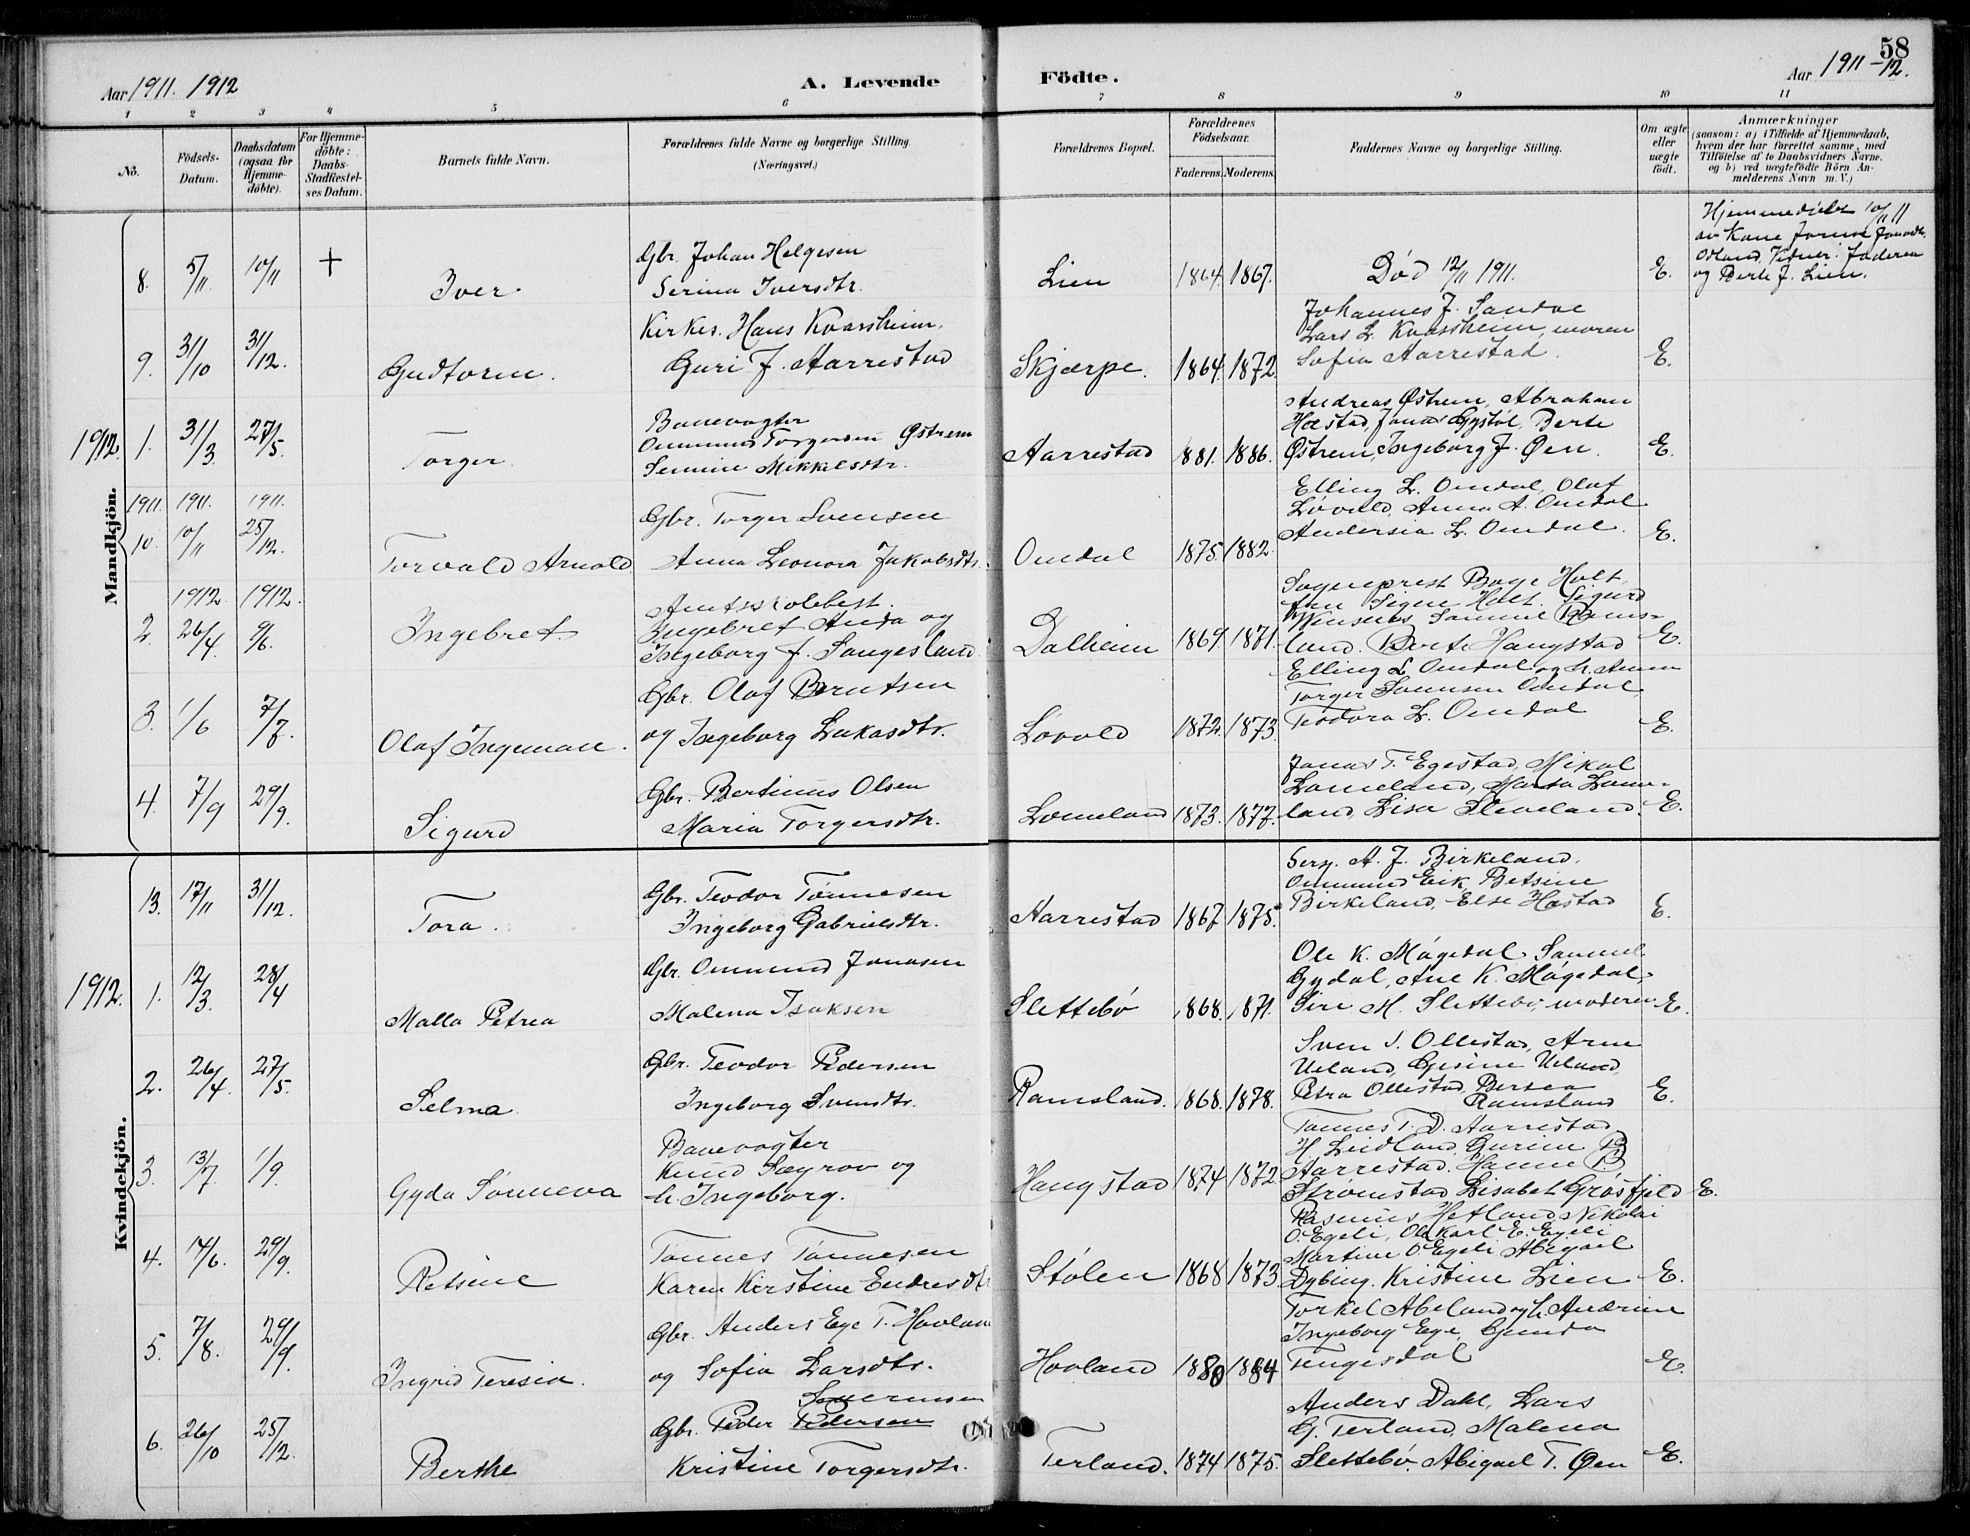 58
Aar 1911. 1912
A. Levende
Födte.
Aar 1911-12.
1 2 3 4 5 6 7 8 9 10 11
No.
Födsels-Datum.
Daabsdatum (ogsaa for Hjemme-döbte).
For Hjemme-döbte: Daabs-Stadfæstel-ses Datum.
Barnets fulde Navn.
Forældrenes fulde Navne og borgerlige Stilling.
(Næringsvei.)
Forældrenes Bopæl.
Forældrenes Födselsaar.
Faderens. Moderens.
Faddernes Navne og borgerlige Stilling.
Om ægte eller uægte födt.
Anmærkninger
(saasom: a) i Tilfælde af Hjemmedaab,
hvem der har forrettet samme, med
Tilföielse af to Daabsvidners Navne.
og b) ved uægtefödte Börn An-
melderens Navn m. V.)
Mandkjön.
8. 5/11. 10/11 + Iver.
Gbr. Johan Helgesen
Serina Iversdtr.
Lien 1864. 1867.
Död 12/11 1911.
E.
Hjemmedöbt 10/11 11
av Kone
Odland. Vidner: Faderen
og Berte J. Lien.
9. 31/10 31/12. Gudtorm.
Kirkes. Hans Kvassheim.
Guri J. Aarrestad
Skjærpe. 1864. 1872.
Johannes J. Sandve
Lars L. Kvassheim, moren
Sofia Aarrestad.
E.
1912. 1. 31/3. 27/5. Torger.
Banevogter
Ommund Torgersen Östrem
Semine Mikkelsdtr.
Aarrestad 1881. 1886.
Andreas Östrem, Abraham
Hæstad, Jonas Gystöl, Berte
Östrem, Ingeborg J. Øen.
E.
1911 1911. 1911.
10. 10/11 25/12. Torvald Arnold
Gbr. Torger Svensen
Anna Leonora Jakobsdtr.
Omdal 1875. 1882.
Elling L. Omdal, Olaf
Lövold, Anna A. Omdal
Andersia L. Omdal.
E.
1912. 1912.
2. 26/4. 9/6. Ingebret
Ingebret Anda og
Ingeborg J. Sangesland
Dalheim 1869. 1871.
Sogneprest Boye Holt,
fru Signe Holt, Sigurd
Samuel Rams-
land. Berte Haugstad
E.
3. 1/6 7/7. Olaf Ingeman.
Gbr. Olaf Berntsen
og Ingeborg Lukasdtr.
Lövold 1872. 1873
Elling L. Omdal og h. Anna
Torger Svensen Omdal
Teodora L. Omdal
E.
4. 7/9 29/9. Sigurd
Gbr. Bertinius Olsen
Maria Torgersdtr.
Lomeland 1873. 1877.
Jonas T. Egestad, Mikal
Lomeland, Marta Lome-
land, Lisa Sleveland.
E.
Kvindekjön.
13. 17/11 31/12. Tora.
Gbr. Teodor Tönnesen
Ingeborg Gabrielsdtr.
Aarrestad 1867 1875.
Serg. A. J. Birkeland.
Ommund Eik, Betsine
Birkeland, Else Hæstad
E.
1912. 1. 12/3. 28/4 Malla Petrea
Gbr. Ommund Jonasen
Malena Isaksen
Slettebö 1868. 1871.
Ole K. Mågedal, Samuel
Gydal, Ane K. Mågedal,
Siri M. Slettebö, moderen
E.
2. 26/4. 27/5. Selma
Gbr. Teodor Pedersen
Ingeborg Svendtr.
Ramsland. 1868. 1878.
Sven S. Ollestad, Arne
Ueland, Gjesine Ueland,
Petra Ollestad, Bertea
Ramsland
E.
3. 13/7. 1/9. Gyda Sönneva
Banevogter
Knud Sægrov og
h. Ingeborg.
Haugstad 1874 1872.
Tönnes T. D. Aarrestad
H. Leidland, Gurine B
Aarrestad. Hanne B.
Strömstad Lisabet Gråsfjeld
E.
4. 14/6. 29/9. Retsine
Tönnes Tönnesen
Karen Kirstine Endresdtr
Stölen 1868 1873
Rasmus Hetland, Nikolai
O. Egeli, Ole Karl E. Egeli
Martine O. Egeli Abigael
Dybing. Kristine Lien
E.
5. 7/8. 29/9. Ingrid Teresia.
Gbr. Anders Ege T. Hovland
og Sofia Larsdtr.
Hovland 1880 1884
Torkel Abeland og h. Andrine
Ingeborg Ege, Gunda
Tengesdal
E.
6. 26/10 25/12. Berthe
Severinsen
Gbr. Peder Pedersen
Kristine Torgersdtr.
Terland. 1874 1875.
Anders Dahl, Lars
G. Terland, Malena
Slettebö. Abigael T. Øen
E.